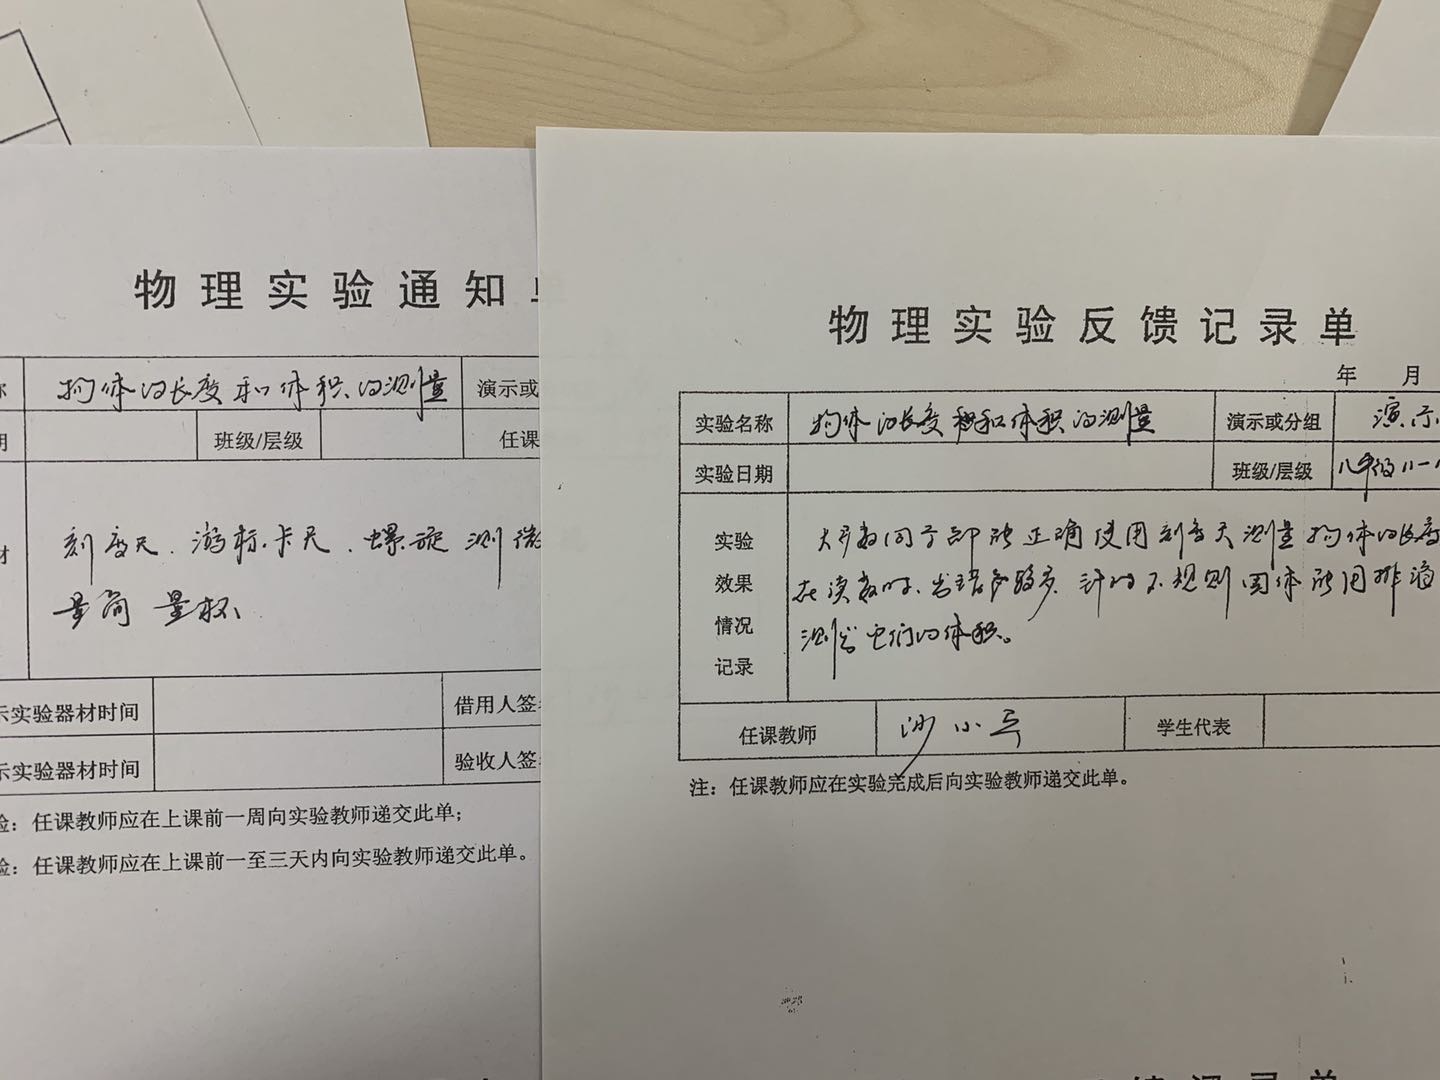 物理实验通知单
称 物体的长度和体积的测量 演示或
期 班级/层级 任课
材 刻度尺、游标卡尺、螺旋测微
量筒 量杯
示实验器材时间 借用人签
示实验器材时间 验收人签
验：任课教师应在上课前一周向实验教师递交此单；
验：任课教师应在上课前一至三天内向实验教师递交此单。
物理实验反馈记录单
年 月
实验名称 物体的长度和体积的测量 演示或分组 演示
实验日期 班级/层级 八年级
实验 大多数同学都能正确使用刻度尺测量物体的长度
效果 在读数时、出错较多 不规则固体能用排液
情况 测出它们的体积。
记录
任课教师 沙小 学生代表
注：任课教师应在实验完成后向实验教师递交此单。
馈记录单